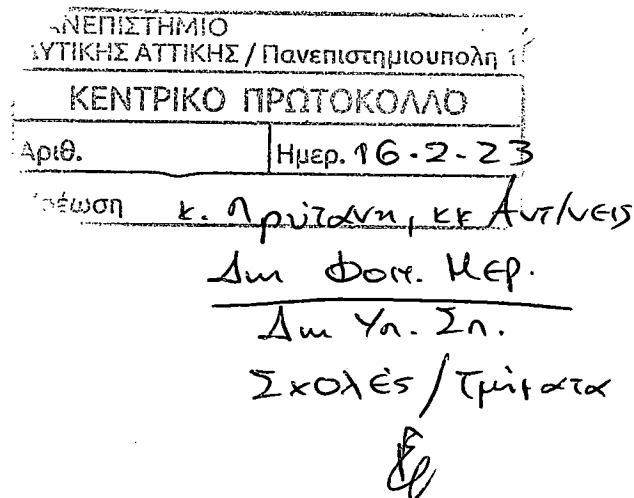 ΑΝΕΠΙΣΤΗΜΙΟ
ΥΤΙΚΗΣ ΑΤΤΙΚΗΣ / Πανεπιστημιουπολη 1
ΚΕΝΤΡΙΚΟ ΠΡΩΤΟΚΟΛΛΟ
Αριθ.
Ημερ. 16-2-23
έωση κ. Πρύτανη, κκ Αντ/νεις
Δνη Φοιτ. Μερ.
Δνη Υπ. Σπ.
Σχολές / Τμήματα